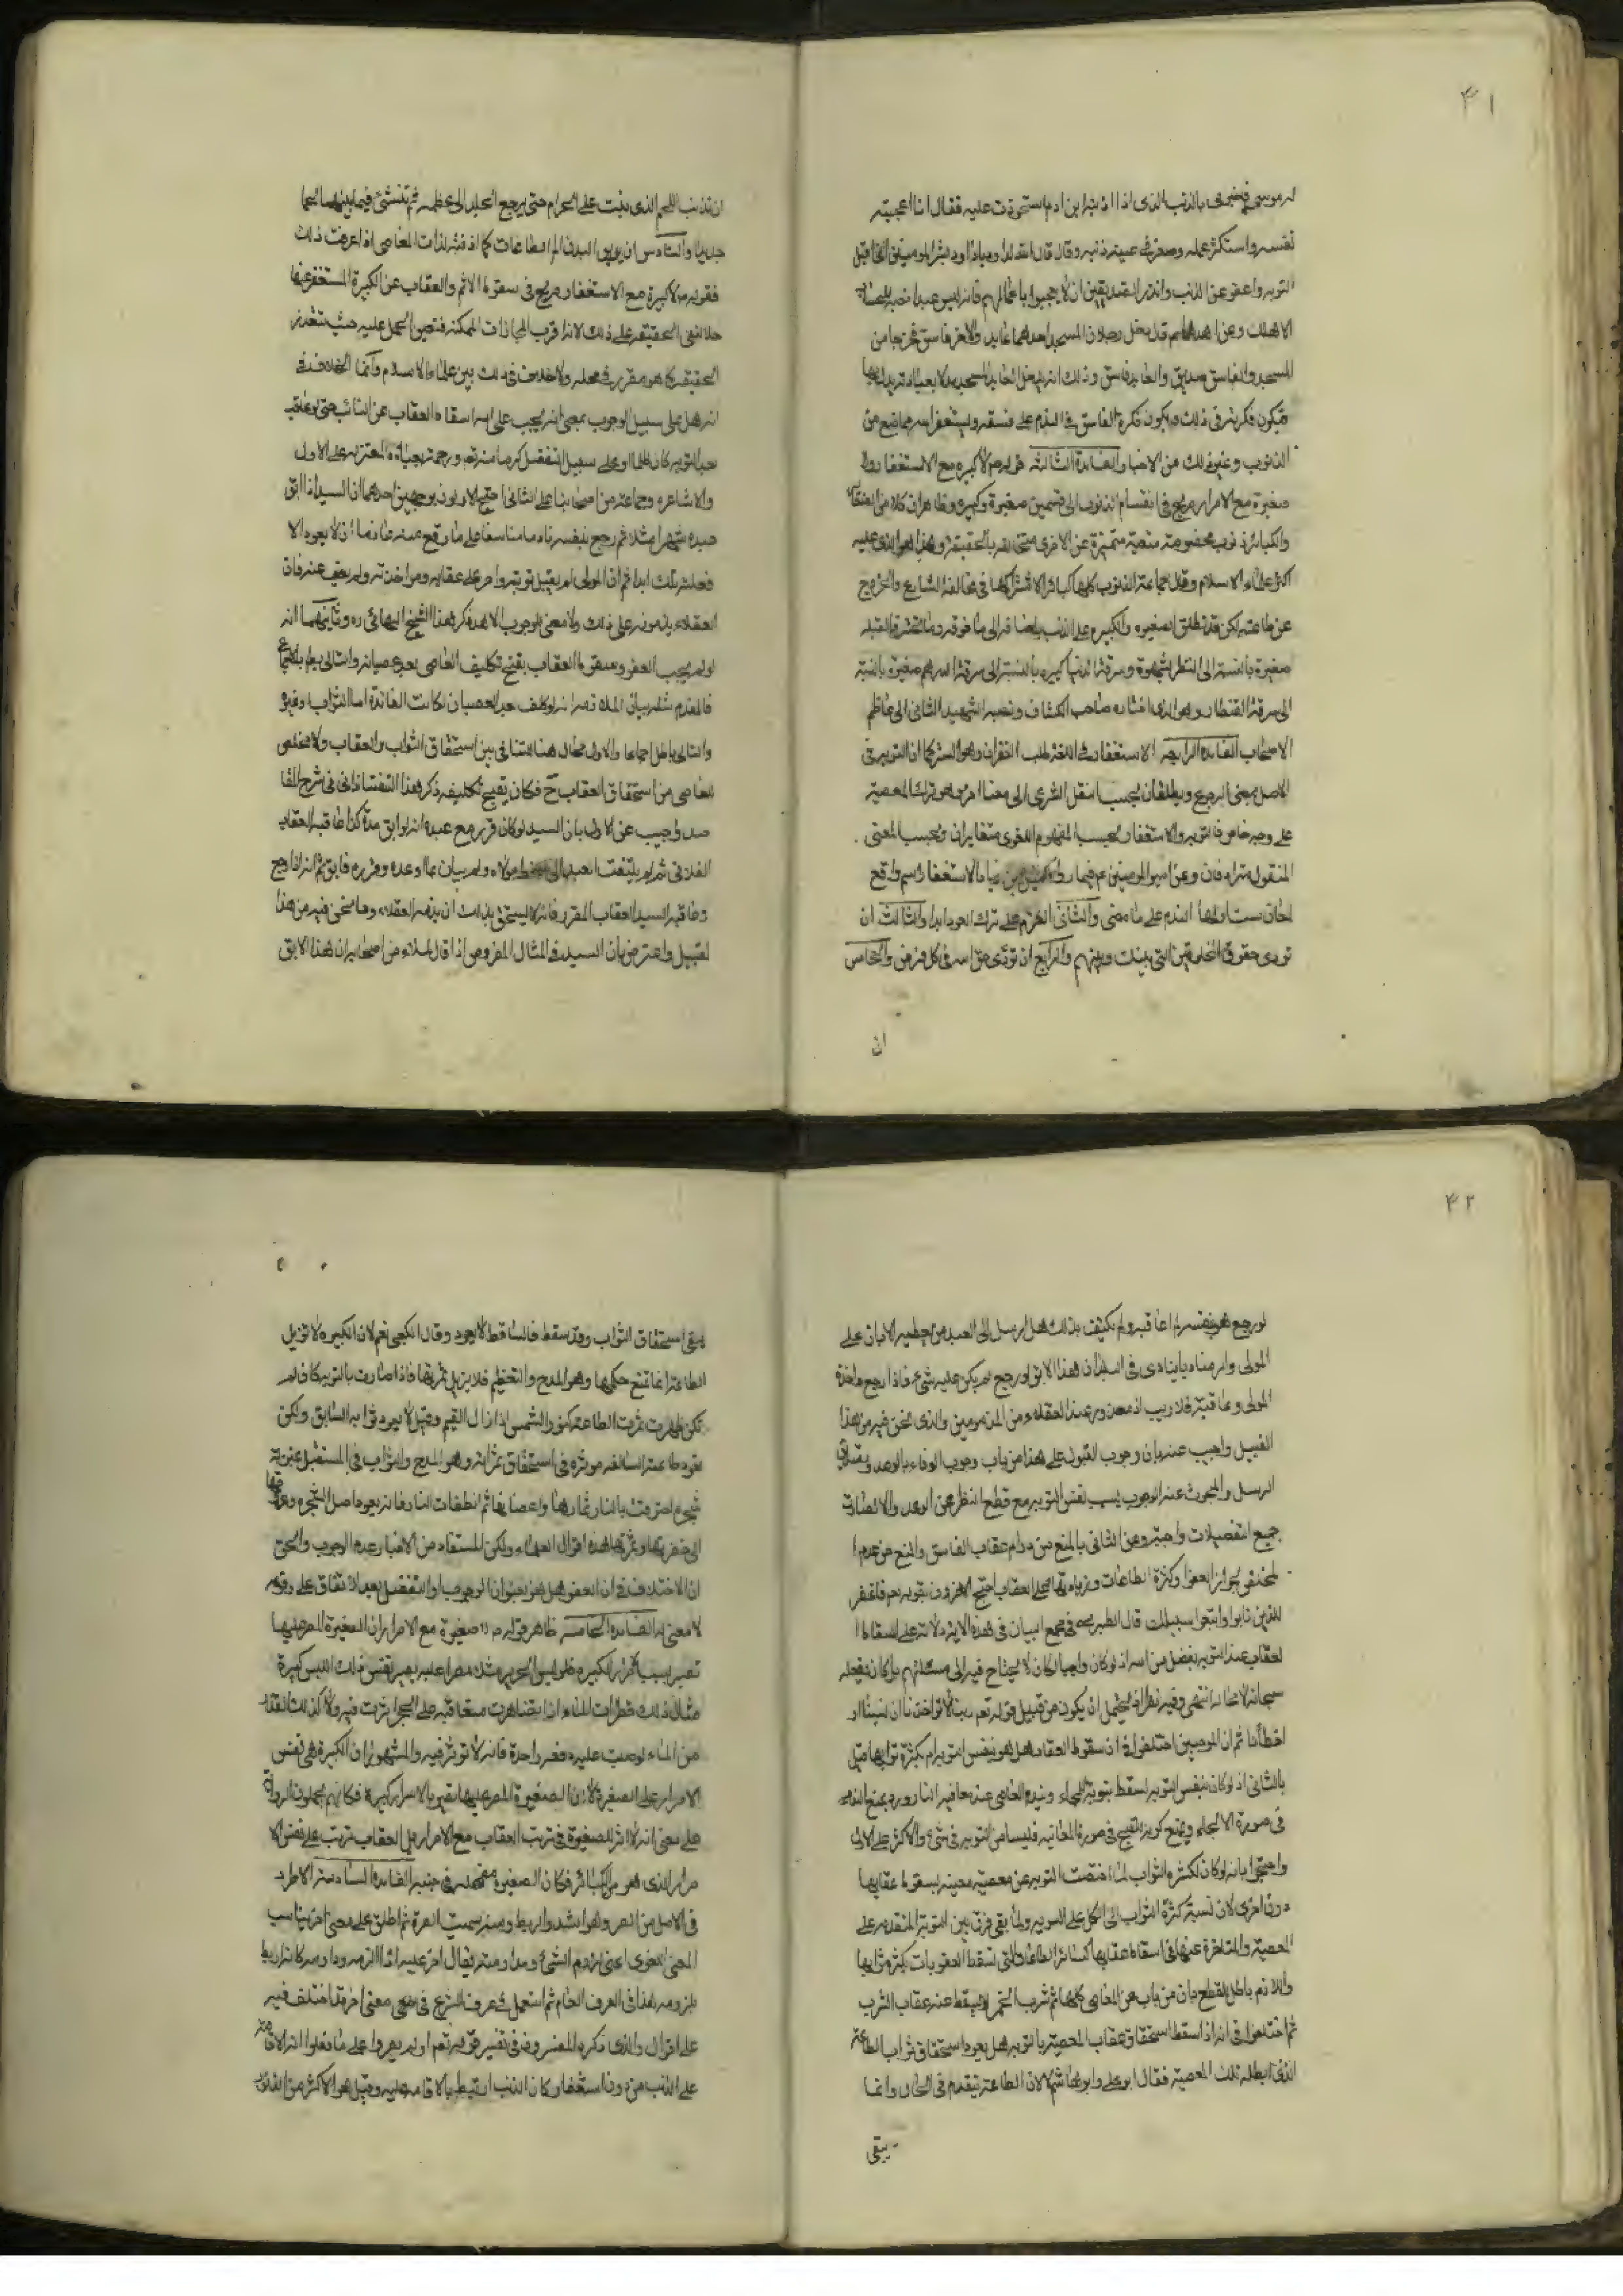 ۴۱
له موسى فاخبرني بالذنب الذي اذا اذنبه ابن ادم استحوذت عليه فقال اذا اعجبته
نفسه واستكثر عمله وصغر في عينه ذنبه وقال قال الله لداود يا داود بشر المذنبين اني اقبل
التوبه واعفو عن الذنب وانذر الصديقين ان لا يعجبوا باعمالهم فانه ليس عبد انصبه للحساب
الا هلك وعن احدهما قال دخل رجلان المسجد احدهما عابد والاخر فاسق فخرجا من
المسجد والفاسق صديق والعابد فاسق وذلك انه يدخل العابد المسجد مدلا بعبادته يدل بها
فتكون فكرته في ذلك وتكون فكرة الفاسق في الندم على فسقه ويستغفر الله مما صنع من
الذنوب وغير ذلك من الاخبار الفائدة الثالثة قوله لا كبيره مع الاستغفار ولا
صغيرة مع الاصرار صريح في انقسام الذنوب الى قسمين صغيرة وكبيره وظاهر ان كلا من الصغائر
والكبائر ذنوب مخصوصة متعينة متميزة عن الاخرى متخالفه بالحقيقة وهذا هو الذي عليه
اكثر علماء الاسلام وقال جماعة الذنوب كلها كبائر لاشتراكها في مخالفة الشارع والخروج
عن طاعته لكن قد يطلق الصغيره والكبيره على الذنب بالاضافه الى ما فوقه وما تحته فالقبله
صغيرة بالنسبة الى النظر بشهوة وسرقة الدنيا كبيره بالنسبة الى سرقة الدرهم صغيرة بالنسبة
الى سرقة القنطار وهو الذي اختاره صاحب الكشاف ونسبه الشهيد الثاني الى معاظم
الاصحاب الفائدة الرابعه الاستغفار في اللغة طلب الغفران وهو الستر كما ان التوبه في
الاصل بمعنى الرجوع ويطلقان بحسب النقل الشرعي الى معنا اخر وهو ترك المعصية
على وجه خاص فالتوبه والاستغفار بحسب المفهوم اللغوي متغايران وبحسب المعنى
المنقول مترادفان وعن امير المومنين ع فيما رواه كميل بن زياد الاستغفار اسم واقع
لمعان ست اولها الندم على ما مضى والثاني العزم على ترك العود ابدا والثالث ان
تودى حقوق المخلوقين التي بينك وبينهم والرابع ان تؤدى حق الله في كل فرض والخامس
ان
ان تذيب اللحم الذي نبت على الحرام حتى يرجع الجلد الى عظمه ثم تنشئ فيما بينهما لحما
جديدا والسادس ان يذيق البدن الم الطاعات كما اذقته لذات المعاصي اذا عرفت ذلك
فقوله لا كبيرة مع الاستغفار صريح في سقوط الاثم والعقاب عن الكبيرة المستغفر عنها
حملا لنفي الحقيقه على ذلك لانه اقرب المجازات الممكنه فتعين الحمل عليه حيث تتعذر
الحقيقه كما هو مقرر في محله ولا خلاف في ذلك بين علماء الاسلام وانما الخلاف في
انه هل على سبيل الوجوب بمعنى انه يجب على الله اسقاط العقاب عن التائب حتى لو عاقبه
بعد التوبه كان ظلما او على سبيل التفضل كرما منه تعالى ورحمة بعباده المعتزله على الاول
والاشاعره وجماعة من اصحابنا على الثاني احتج الاولون بوجهين احدهما ان السيد اذا ابق
عبده شهرا مثلا ثم رجع بنفسه نادما متاسفا على ما وقع عنه عازما ان لا يعود الا
فعله ذلك ابدا ثم ان المولى لم يقبل توبته واصر على عقابه ومواخذته ولم يعف عنه فان
العقلاء يذمونه على ذلك ولا معنى للوجوب الا هذه ذكر هذا الشيخ البهائي ره وثانيهما انه
لو لم يجب العفو وسقوط العقاب بقبح تكليف العاصى بعد عصيانه والتالي باطل بالاجماع
فالمقدم مثله بيان الملازمه انه لو كلف بعد العصيان لكانت الفائدة اما الثواب او غيره
والتالي باطل اجماعا والاول محال هنا للتنافي بين استحقاق الثواب والعقاب ولا مخلص
للعاصى من استحقاق العقاب ح فكان يقبح تكليفه ذكر هذا التفتازاني في شرح المقا
صد واجيب عن الاول بان السيد لو كان قرر مع عبده انه لو ابق مدة كذا عاقبه العقاب
الفلاني ثم لم يلتفت العبد الى سخط مولاه ولم يبال بما اوعده وقرره فابق ثم انه اذا رجع
وعاقبه السيد العقاب المقرر فانه لا يستحق بذلك ان يذمه العقلاء وما نحن فيه من هذا
القبيل واعترض بان السيد في المثال المفروض اذا قال لملاء من اصحابه ان هذا الابق
۴۲
لو رجع هو بنفسه لم اعاقبه ولم يكتف بذلك بل ارسل الى العبد من يعظم الاباق على
المولى وامر مناديا ينادي في البلد ان هذا الابق لو رجع لم يكن عليه شئ فاذا رجع واخذه
المولى وعاقبه فلا ريب انه معدود عند العقلاء من المذمومين والذي نحن فيه من هذا
القبيل واجيب عنه بان وجوب القبول على هذا من باب وجوب الوفاء بالوعد وتصديق
الرسل والمبحوث عنه الوجوب بسبب نفس التوبه مع قطع النظر عن الوعد والا لصارت
جميع التفضيلات واجبة وعن الثاني بالمنع من دوام عقاب الفاسق والمنع من عدم ا
لمخلص لجواز العفو او كثرة الطاعات وزيادتها على العقاب احتج الاخرون بقوله تعم فاغفر
للذين تابوا واتبعوا سبيلك قال الطبرسي في مجمع البيان في هذه الايه دلالة على ان اسقاط ا
لعقاب عند التوبه تفضل من الله اذ لو كان واجبا لكان لا يحتاج فيه الى مسئلتهم بل كان يفعله
سبحانه لا محاله انتهى وفيه نظر اذ يحتمل ان يكون من قبيل قوله تعم ربنا لا تؤاخذنا ان نسينا او
اخطأنا ثم ان الموجبين اختلفوا في ان سقوط العقاب هل هو بنفس التوبه ام بكثرة ثوابها قيل
بالثاني اذ لو كان بنفس التوبه لسقط بتوبة الملجاء وبندم العاصى عند معاينه النار ورد بمنع الندم
في صورة الالجاء وبمنع كونه للقبح في صورة المعاينه فليسا من التوبه في شئ والاكثر على الاول
واحتجوا بانه لو كان لكثرة الثواب لما اختصت التوبه عن معصية معينه بسقوط عقابها
دون اخرى لان نسبة كثرة الثواب الى الكل على السويه ولما بقى فرق بين التوبه المتقدمه على
المعصية والمتاخرة عنها في اسقاط عقابها كسائر الطاعات التي تسقط العقوبات بكثرة ثوابها
واللازم باطل للقطع بان من تاب عن المعاصى كلها ثم شرب الخمر لا يسقط عنه عقاب الشرب
ثم اختلفوا في انه اذا سقط استحقاق عقاب المعصية بالتوبه هل يعود استحقاق ثواب الطاعة
الذي ابطله تلك المعصية فقال ابو على وابو هاشم لا لان الطاعة تنعدم في الحال وانما
يبقى
يبقى استحقاق الثواب وقد سقط والساقط لا يعود وقال الكعبى نعم لان الكبيره لا تزيل
الطاعة انما تمنع حكمها وهو المدح والتعظيم فلا يزيل ثمرتها فاذا صارت بالتوبه كان لم
تكن ظهرت ثمرت الطاعة كنور الشمس اذا زال الغيم وقيل لا يعود ثوابه السابق ولكن
تعود طاعته السالفه موثره في استحقاق ثمراته وهو المدح والثواب في المستقبل بمنزلة
شجرة احترقت بالنار ثمارها واغصانها ثم انطفات النار فانه يعود اصل الشجرة وعروقها
الى خضرتها وثمرتها هذه اقوال العلماء ولكن المستفاد من الاخبار عدم الوجوب والحق
ان الاختلاف في ان العفو هل هو بعنوان الوجوب او التفضل بعد الاتفاق على وقوعه
لا معنى له الفائدة الخامسه ظاهر قوله ولا صغيرة مع الاصرار ان الصغيرة المصر عليها
تصير بسبب الاصرار كبيره فلو لبس الحرير مثلا مصرا عليه يصير نفس ذلك اللبس كبيرة
مثال ذلك قطرات الماء اذا تقاطرت متعاقبه على الحجر اثرت فيه ولو كان ذلك القدر
من الماء لو صب عليه دفعه واحدة فانه لا تؤثر فيه والمشهور ان الكبيرة هي نفس
الاصرار على الصغيرة لا ان الصغيرة المصر عليها تصير بالاصرار كبيرة فكانهم يحملون الرواية
على معنى انه لا اثر للصغيرة في ترتب العقاب مع الاصرار بل العقاب ترتب على نفس الا
صرار الذي هو من الكبائر فكان الصغيره مضمحلة في جنبه الفائدة السادسة الاصرار
في الاصل من الصر وهو الشد والربط ومنه سميت الصرة ثم اطلق على معنى اخر يناسب
المعنى اللغوى اعنى لزوم الشئ ومداومته يقال اصر عليه اذا لزمه وداومه كانه ارتبط
بلزومه هذا في العرف العام ثم استعمل في عرف الشرع في معنى اخر قد اختلف فيه
على اقوال والذى ذكره المفسرون في تفسير قوله تعم ولم يصروا على ما فعلوا انه الاقامة
على الذنب من دون استغفار كان الذنب ارتبط بالاقامه عليه وقيل هو الاكثار من الذنوب